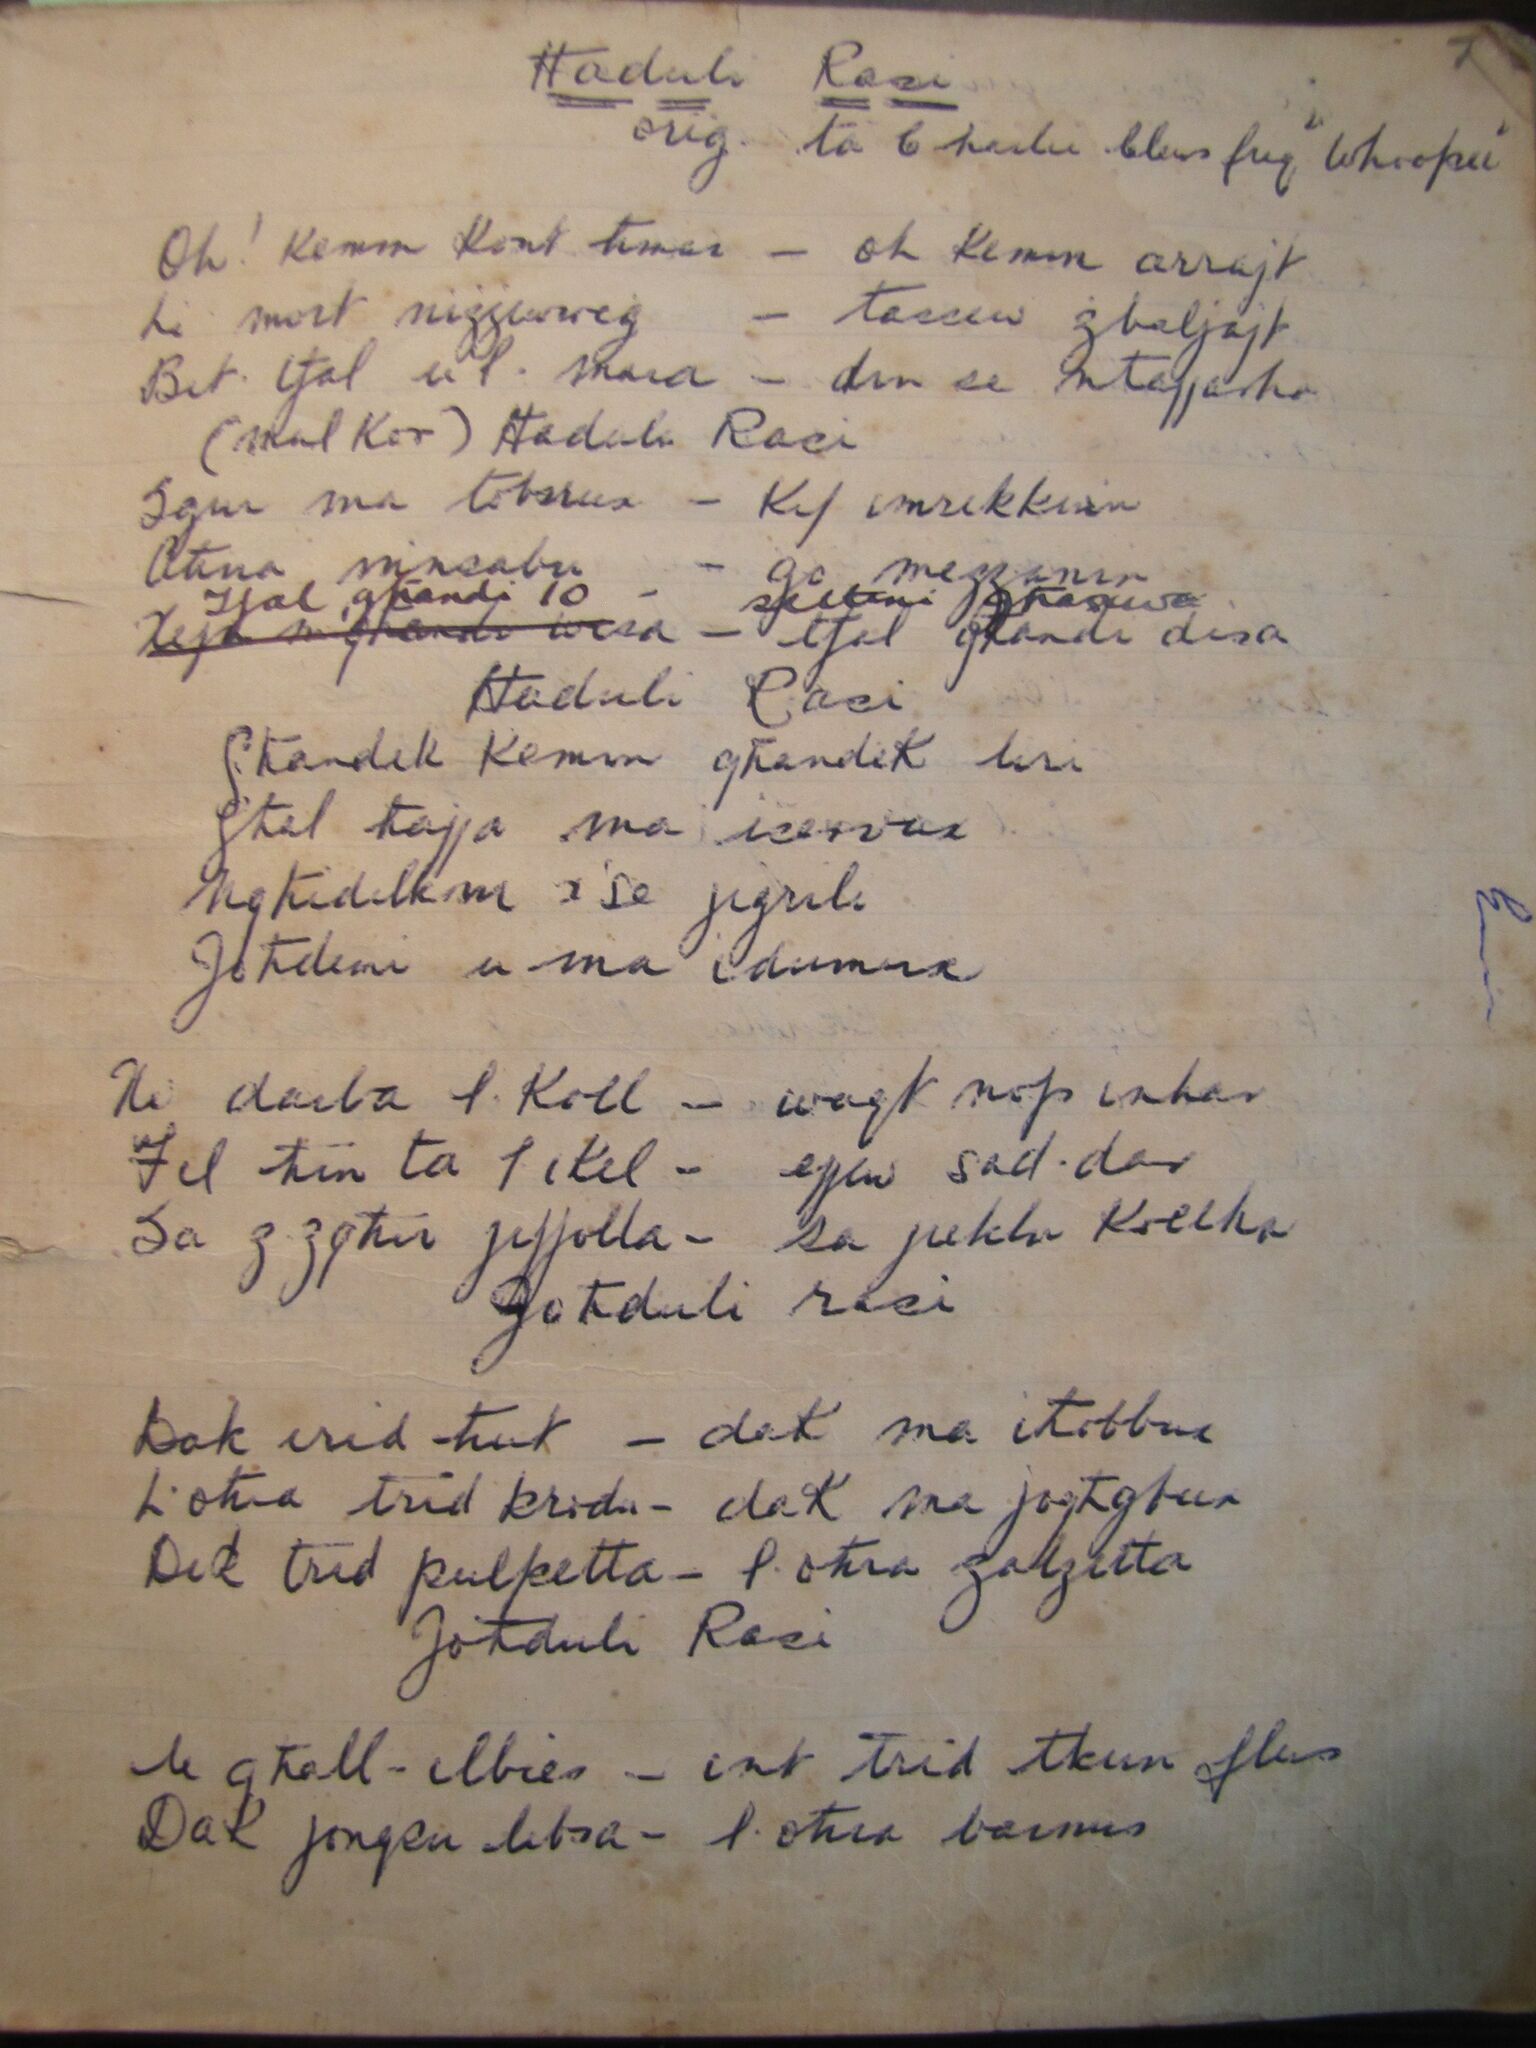 Ħaduli Rasi
orig. ta Charlie Clews fuq "Whoopee"
7
Oh! Kemm Kont tmar - oh Kemm arrajt
Li mort niżżewweġ - tassew żbaljajt
Bit-tfal u l-mara - din se ntajjarha
(mal Kor) Ħaduli Rasi
Sgur ma tobsrux - Kif imrekknin
Aħna ninsabu - ġo mezzanin
Tfal għandi 10 -
Xejn m'għandi wisa - tfal għandi disa
Ħaduli Rasi
Għandek Kemm għandek liri
Għal ħajja ma iservux
Ngħidilkom x'se jiġrili
Joħduni u ma idumux
Xi daqba l-Koll - waqt nofs inhar
Fil ħin ta l-ikel - ejjew sad-dar
Sa ż-żgħir jiffolla - sa jieklu Kollha
Joħduli rasi
Dak irid ħut - dak ma iħobbux
L-oħra trid kridu - dak ma jogħġbux
Dik trid pulpetta - l-oħra zalzetta
Joħduli Rasi
U għall-ilbies - int trid tkun flus
Dak jonqsu libsa - l-oħra barnus